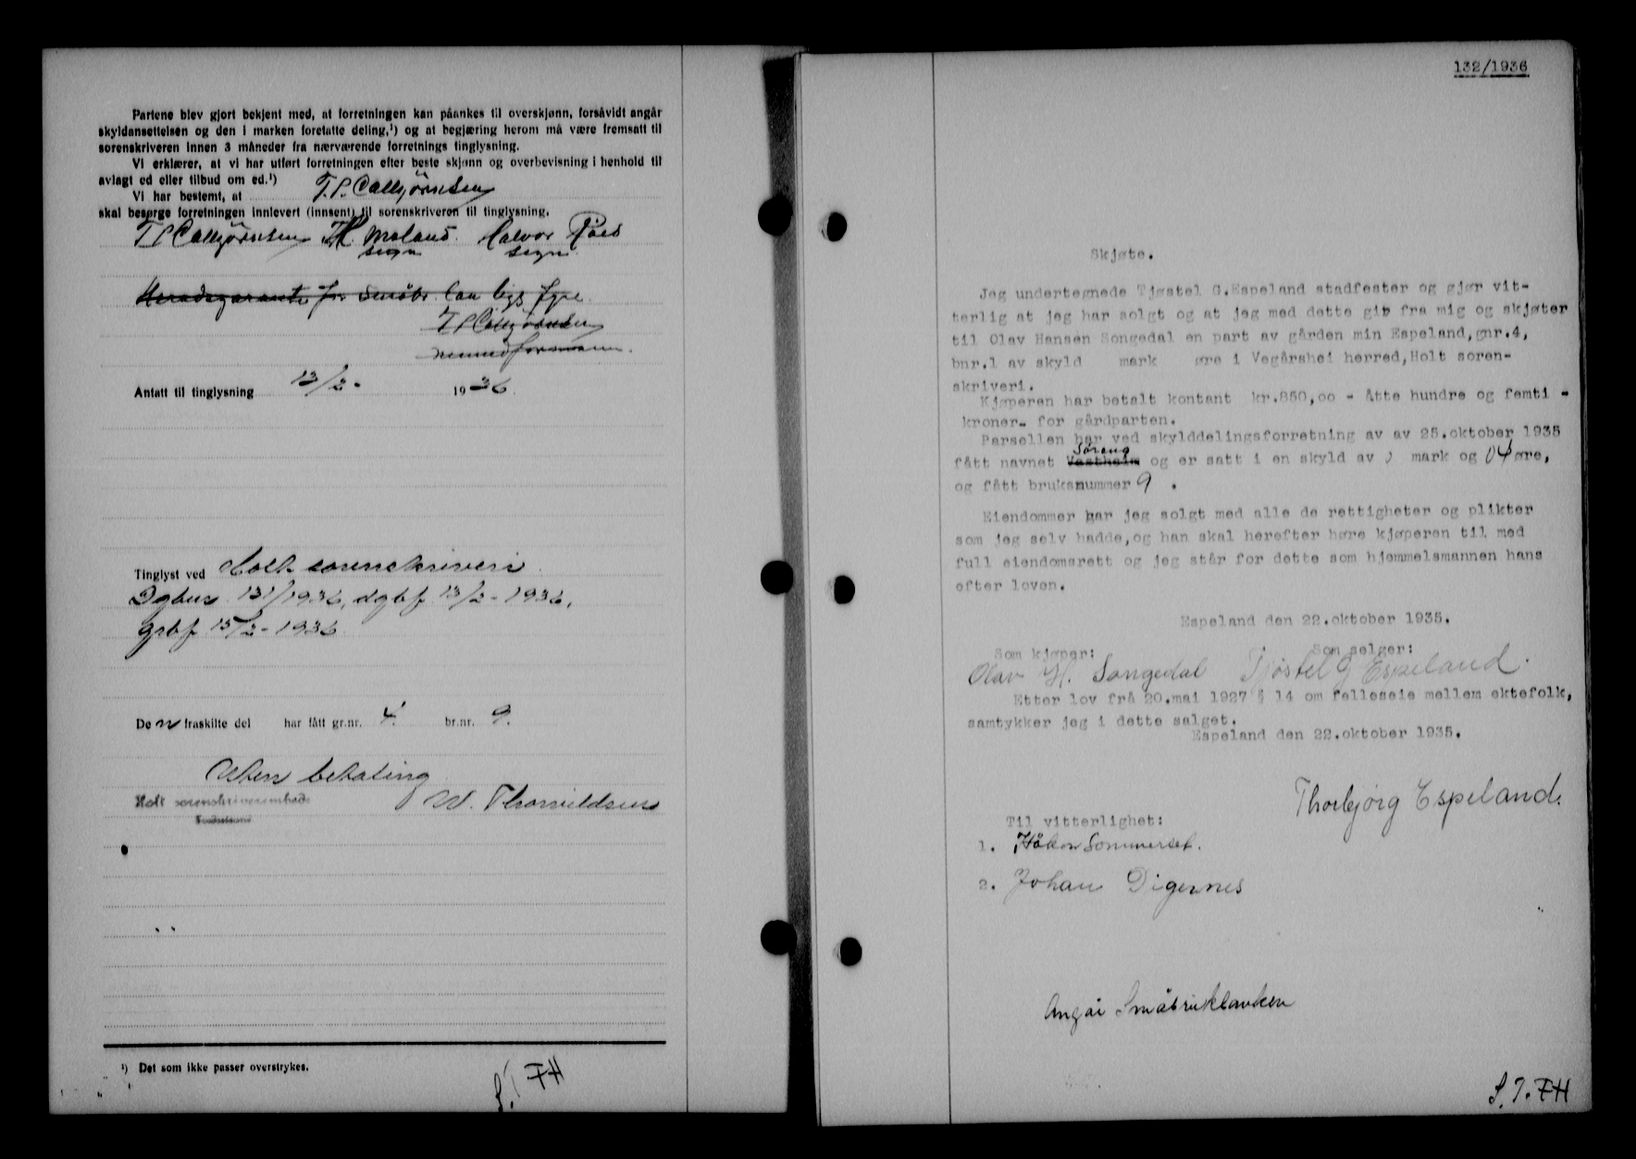 Partene blev gjort bekjent med, at forretningen kan påankes til overskjønn, forsåvidt angår
skyldansettelsen og den i marken foretatte deling,¹) og at begjæring herom må være fremsatt til
sorenskriveren innen 3 måneder fra nærværende forretnings tinglysning.
Vi erklærer, at vi har utført forretningen efter beste skjønn og overbevisning i henhold til
avlagt ed eller tilbud om ed.¹)
Vi har bestemt, at T. P. Callgjørnsen
skal besørge forretningen innlevert (innsent) til sorenskriveren til tinglysning.
T P Callgjørnsen H. Moland. Halvor Råes
sign sign.
Heradsgaranti for Småbr. lån
Antatt til tinglysning 13/2- 1936.
Tinglyst ved Holt sorenskriveri.
Dgbnr 131/1936, dgbf 13/2-1936,
grbf 15/2-1936
Den fraskilte del har fått gr.nr. 4. br.nr. 9.
Uten betaling
Holt sorenskriverembede
W. Thorvildsen
¹) Det som ikke passer overstrykes.
S.T FH
132/1936
Skjøte.
Jeg undertegnede Tjøstel G.Espeland stadfester og gjør vit-
terlig at jeg har solgt og at jeg med dette gir fra mig og skjøter
til Olav Hansen Songedal en part av gården min Espeland,gnr.4,
bnr.1 av skyld mark øre i Vegårshei herred,Holt soren-
skriveri.
Kjøperen har betalt kontant kr.850,oo - Åtte hundre og femti -
kroner- for gårdparten.
Parsellen har ved skylddelingsforretning av av 25.oktober 1935
fått navnet Vestheim og er satt i en skyld av 0 mark og 04 øre,
og fått bruksnummer 9 .
Eiendommer har jeg solgt med alle de rettigheter og plikter
som jeg selv hadde,og han skal herefter høre kjøperen til med
full eiendomsrett og jeg står for dette som hjemmelsmannen hans
efter loven.
Espeland den 22.oktober 1935.
Som kjøper: Som selger:
Olav H. Songedal Tjøstel G Espeland.
Etter lov frå 20.mai 1927 § 14 om felleseie mellem ektefolk,
samtykker jeg i dette salget.
Espeland den 22.oktober 1935.
Thorbjørg Espeland.
Til vitterlighet:
1. Håkon Sommerset.
2. Johan Digernes
Angår Småbruklanken
S.T.FH